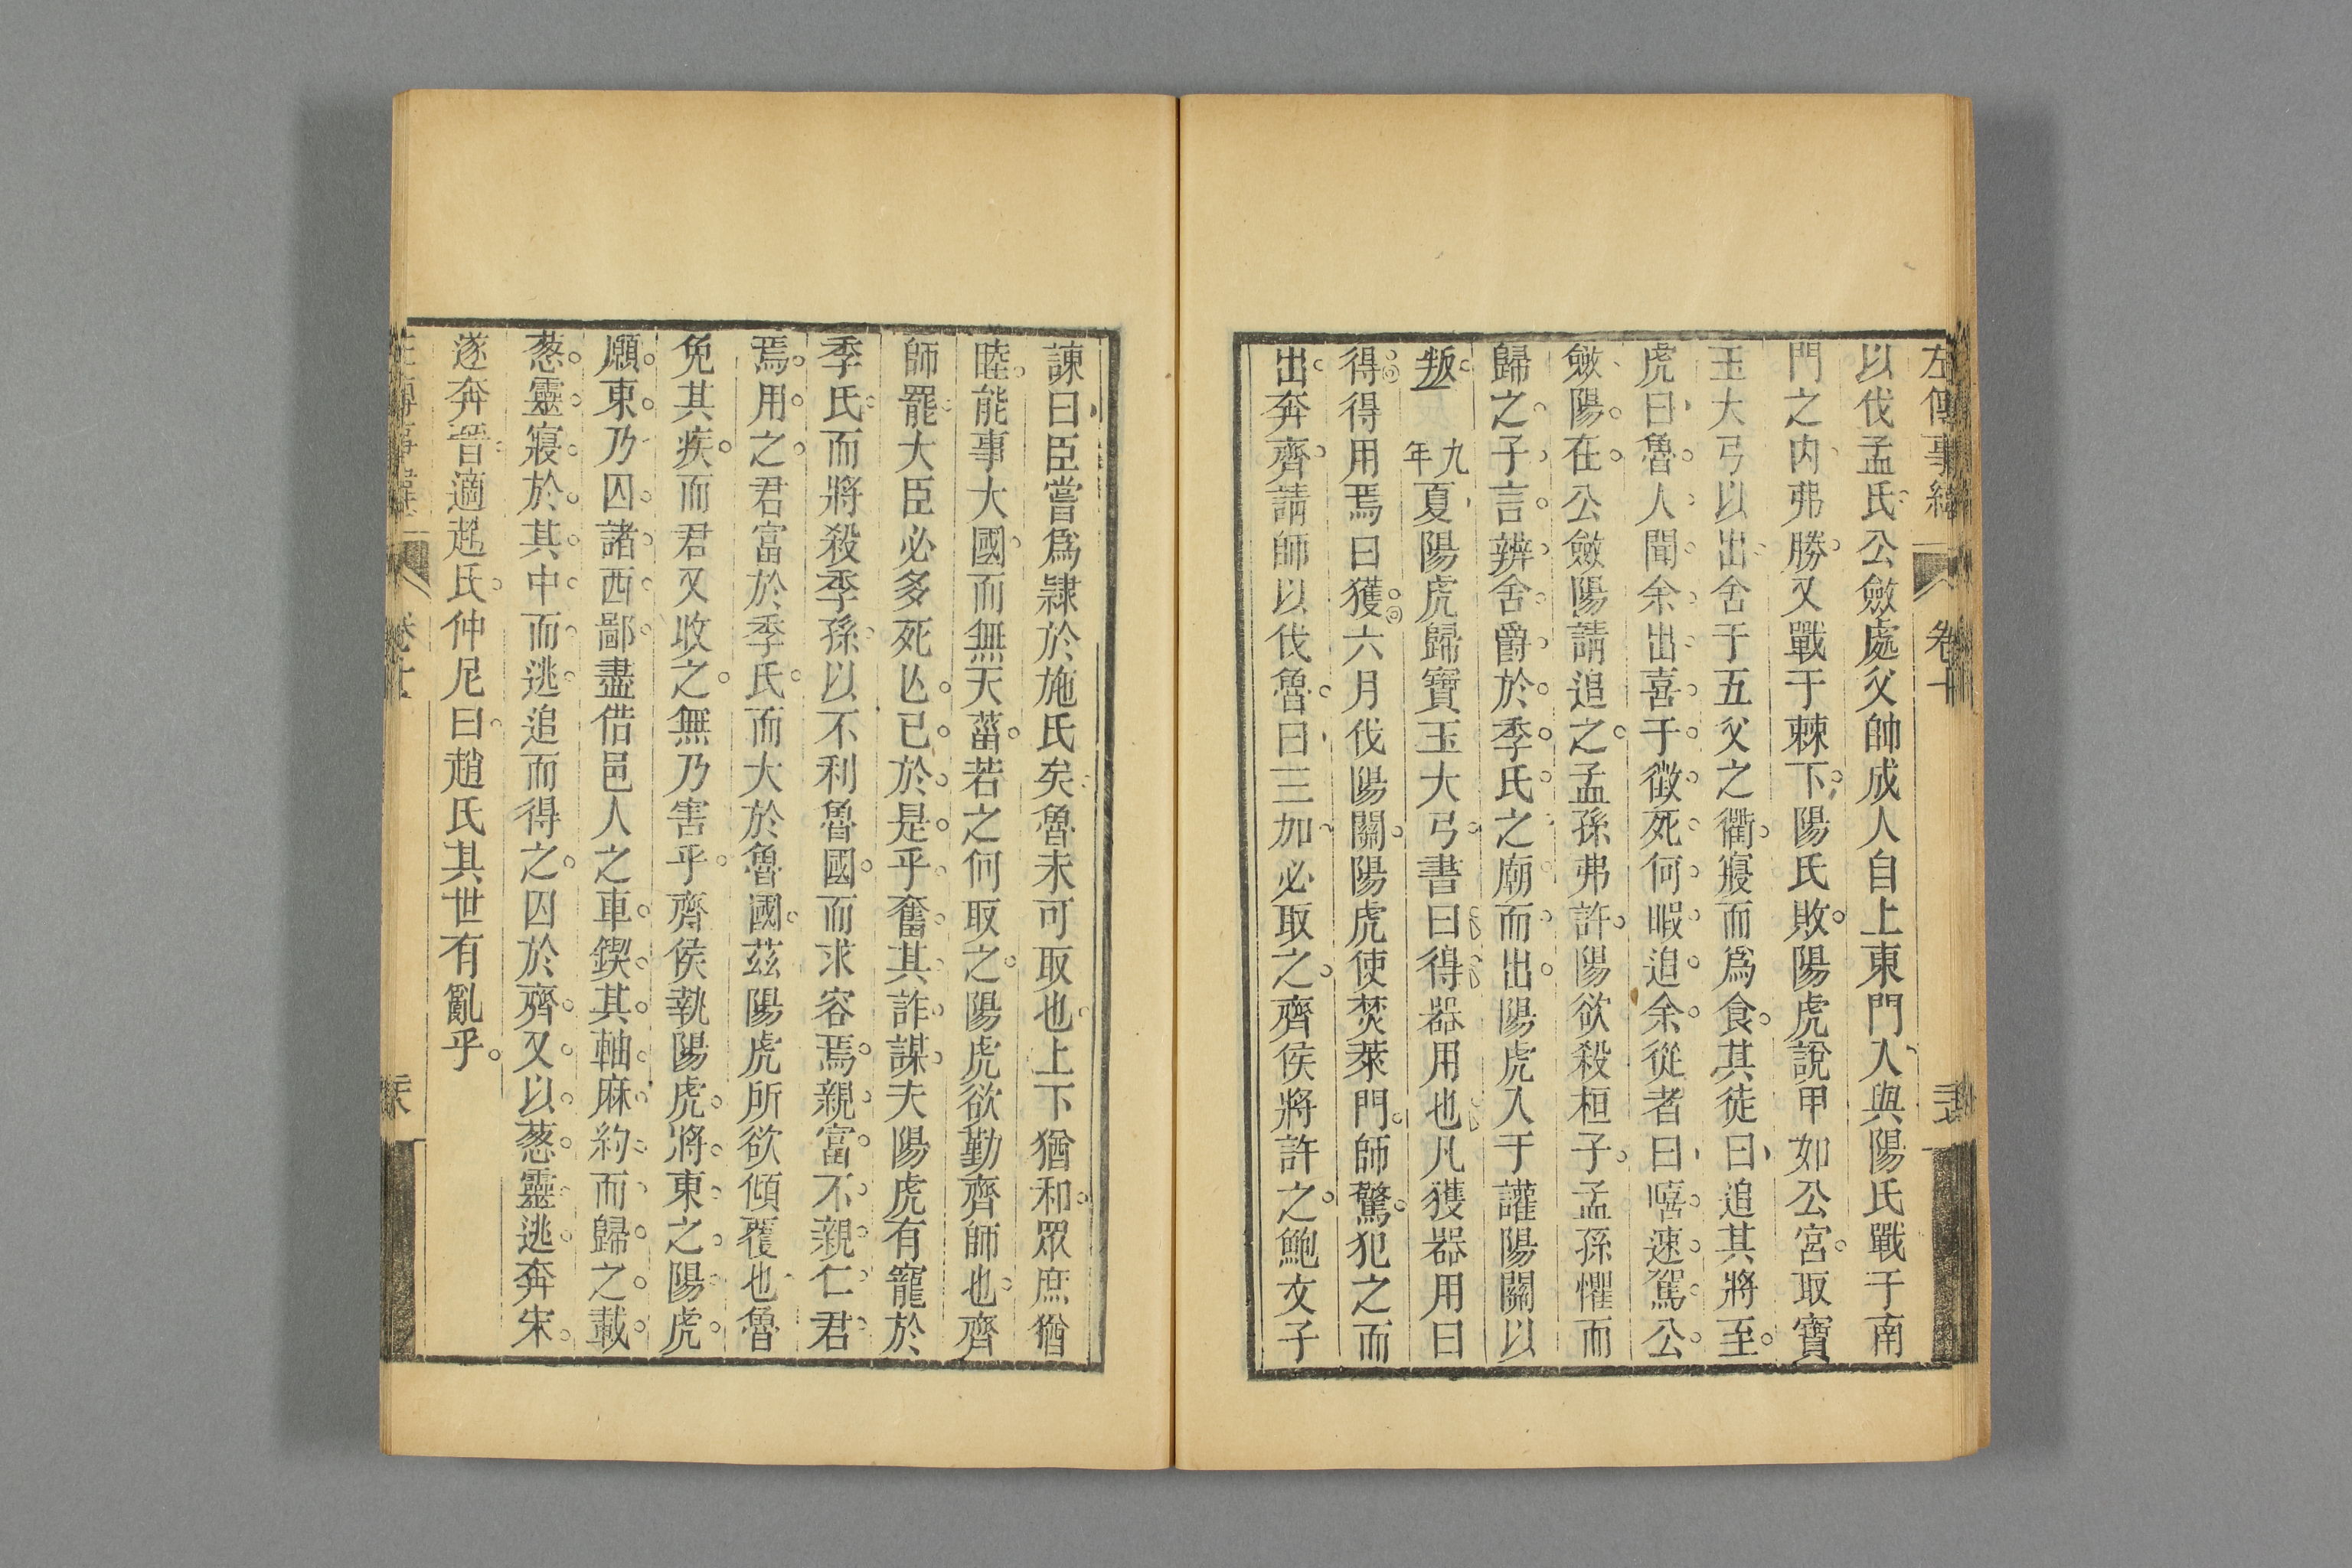 左傳事緯 卷十
以伐孟氏公斂處父帥成人自上東門入與陽氏戰于南
門之内弗勝又戰于棘下陽氏敗陽虎說甲如公宮取寶
玉大弓以出舍于五父之衢寢而爲食其徒曰追其將至
虎曰魯人聞余出喜于徵死何暇追余從者曰嘻速駕公
斂陽在公斂陽請追之孟孫弗許陽欲殺桓子孟孫懼而
歸之子言辨舍爵於季氏之廟而出陽虎入于讙陽關以
叛 九年夏陽虎歸寶玉大弓書曰得器用也凡獲器用曰
得得用焉曰獲六月伐陽關陽虎使焚萊門師驚犯之而
出奔齊請師以伐魯曰三加必取之齊侯將許之鮑文子
諫曰臣嘗爲隷於施氏矣魯未可取也上下猶和眾庶猶
睦能事大國而無天菑若之何取之陽虎欲勤齊師也齊
師罷大臣必多死亾已於是乎奮其詐謀夫陽虎有寵於
季氏而將殺季孫以不利魯國而求容焉親富不親仁君
焉用之君富於季氏而大於魯國茲陽虎所欲傾覆也魯
免其疾而君又收之無乃害乎齊侯執陽虎將東之陽虎
願東乃囚諸西鄙盡借邑人之車鍥其軸麻約而歸之載
葱靈寢於其中而逃追而得之囚於齊又以葱靈逃奔宋
遂奔晉適趙氏仲尼曰趙氏其世有亂乎